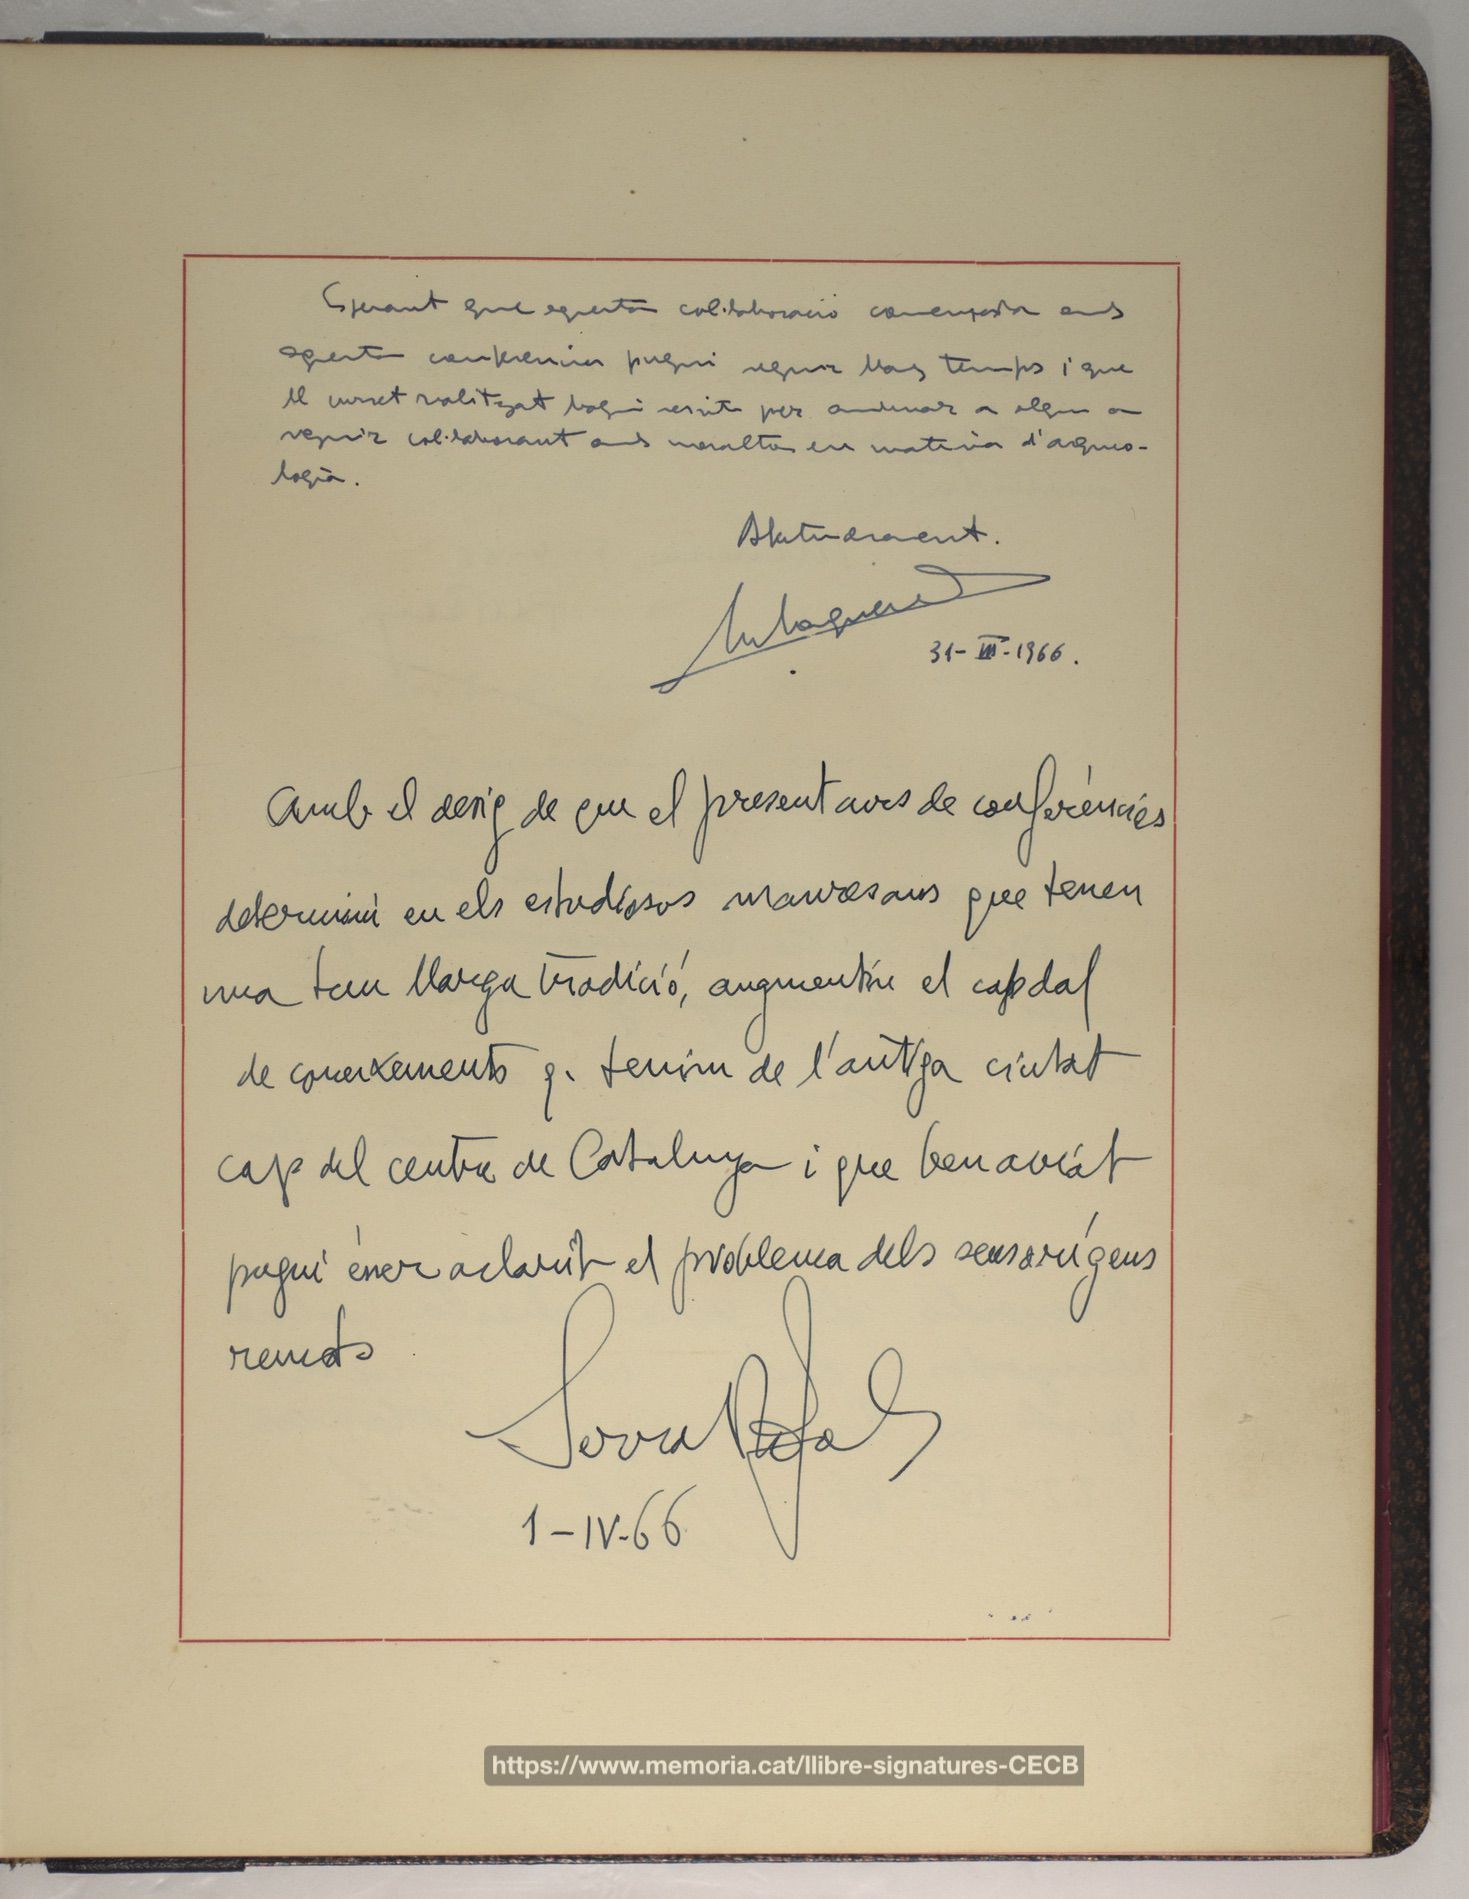 Esperant que aquesta col·laboració començada amb
aquesta conferencia pugui seguir llarg temps i que
el curset realitzat hagi servit per animar a algu a
seguir col·laborant amb nosaltres en materia d'arqueo-
logia.
Afectuosament.
31-III-1966.
Amb el desig de que el present curs de conferéncies
determini en els estudiosos manresans que tenen
una tan llarga tradició, augmentin el capdal
de coneixements q. tenim de l'antiga ciutat
cap del centre de Catalunya i que ben aviat
pugui ésser aclarit el problema dels seus orígens
remots
Serra Ràfols
1-IV-66
https://www.memoria.cat/llibre-signatures-CECB